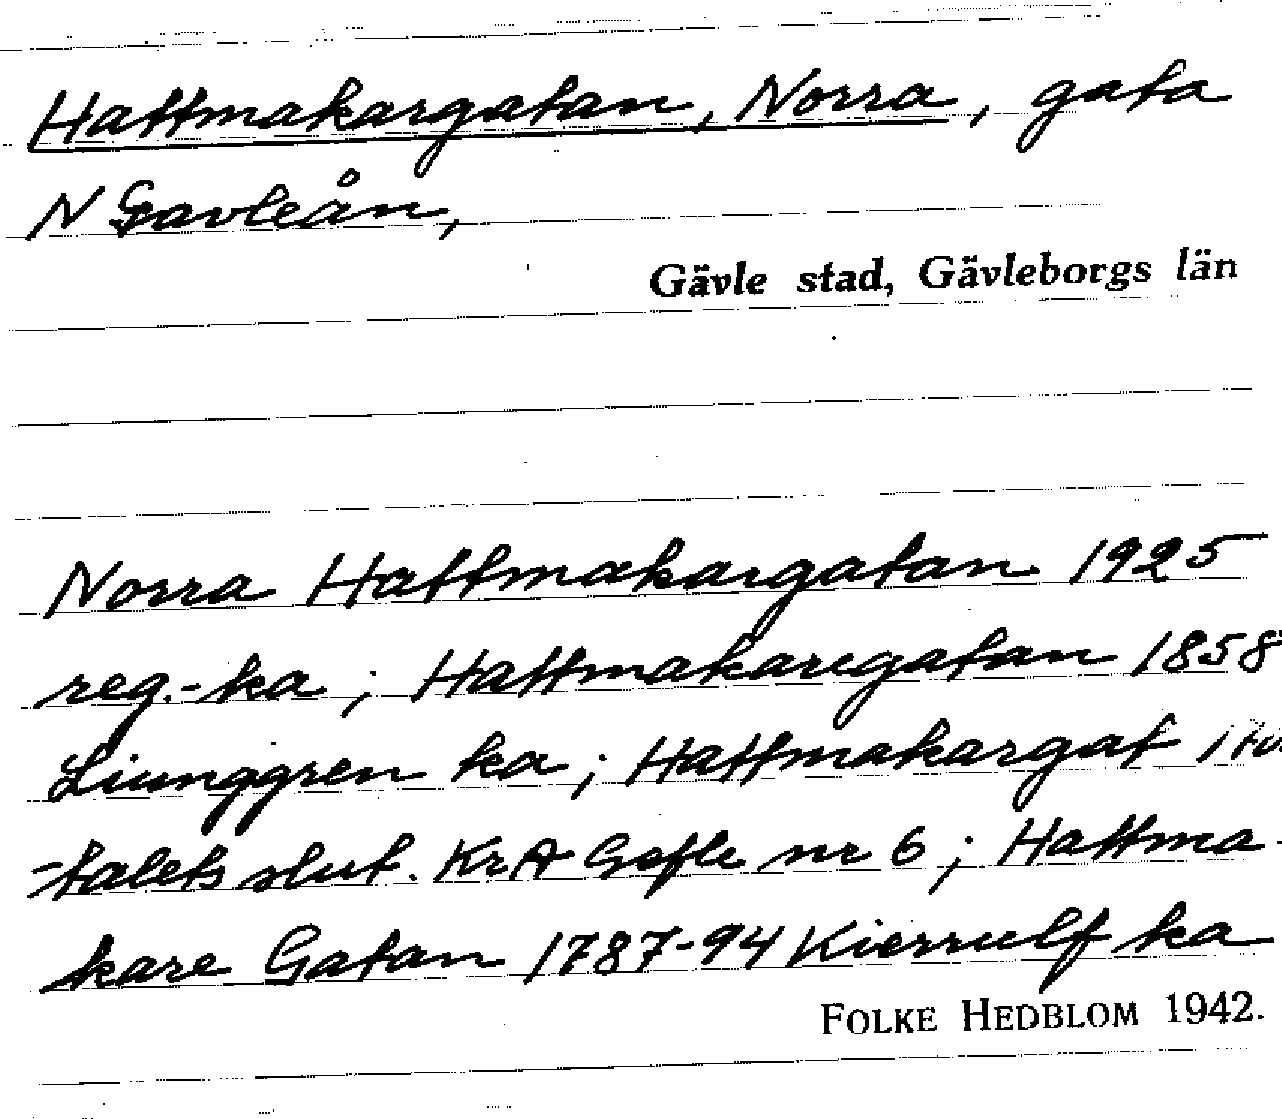 Hattmakargatan, Norra, gata
N Gavleån,
Gävle stad, Gävleborgs län
Norra Hattmakargatan 1925
reg.-ka; Hattmakaregatan 1858
Liunggren ka; Hattmakargat
-talets slut. KrA Gefle nr 6; Hattma-
kare Gatan 1787-94 Kierrulf ka
FOLKE HEDBLOM 1942.